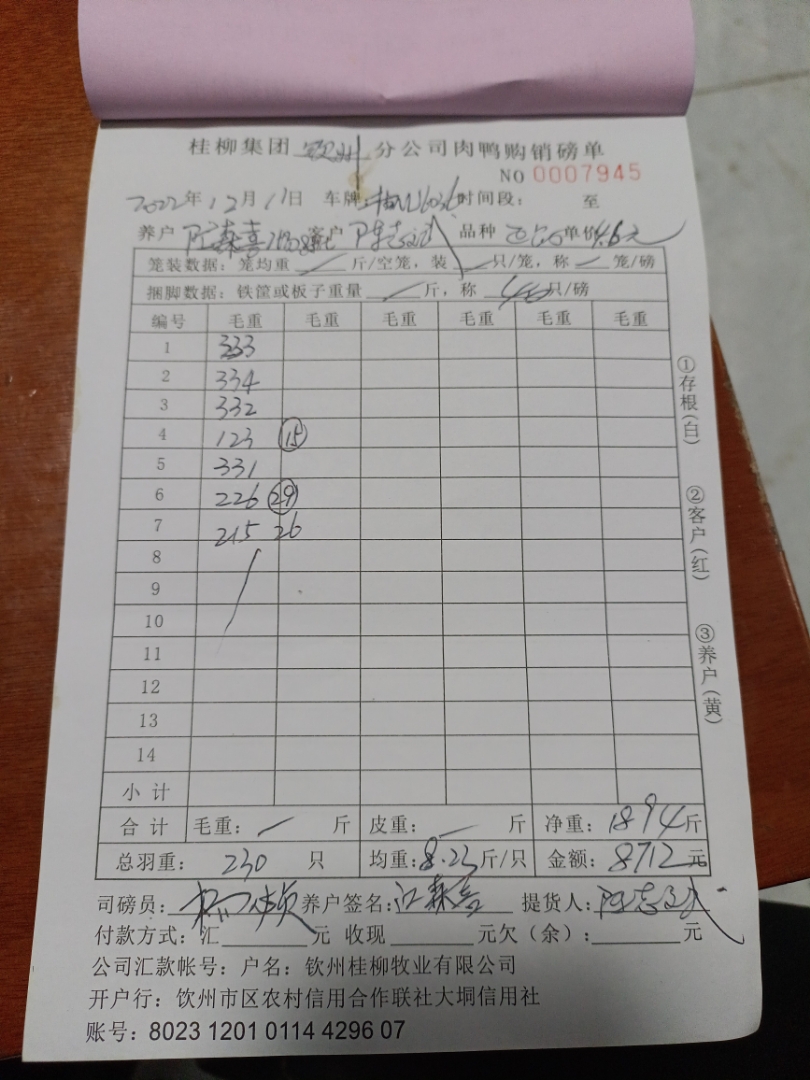 桂柳集团 钦州 分公司肉鸭购销磅单
NO 0007945
2022年12月17日 车牌: 时间段: 至
养户 客户 陈志武 品种 单价4.6元
笼装数据: 笼均重 斤/空笼, 装 只/笼, 称 笼/磅
捆脚数据: 铁筐或板子重量 斤, 称 40只/磅
编号 毛重 毛重 毛重 毛重 毛重
1 333
2 334
3 332
4 123 15
5 331
6 226 29
7 215 26
8
9
10
11
12
13
14
小计
合计 毛重: 斤 皮重: 斤 净重: 1894斤
总羽重: 230 只 均重: 8.23斤/只 金额: 8712元
司磅员: 养户签名: 江森喜 提货人: 陈志武
付款方式: 汇 元 收现 元欠(余): 元
公司汇款帐号: 户名: 钦州桂柳牧业有限公司
开户行: 钦州市区农村信用合作联社大垌信用社
账号: 8023 1201 0114 4296 07
①存根(白)
②客户(红)
③养户(黄)